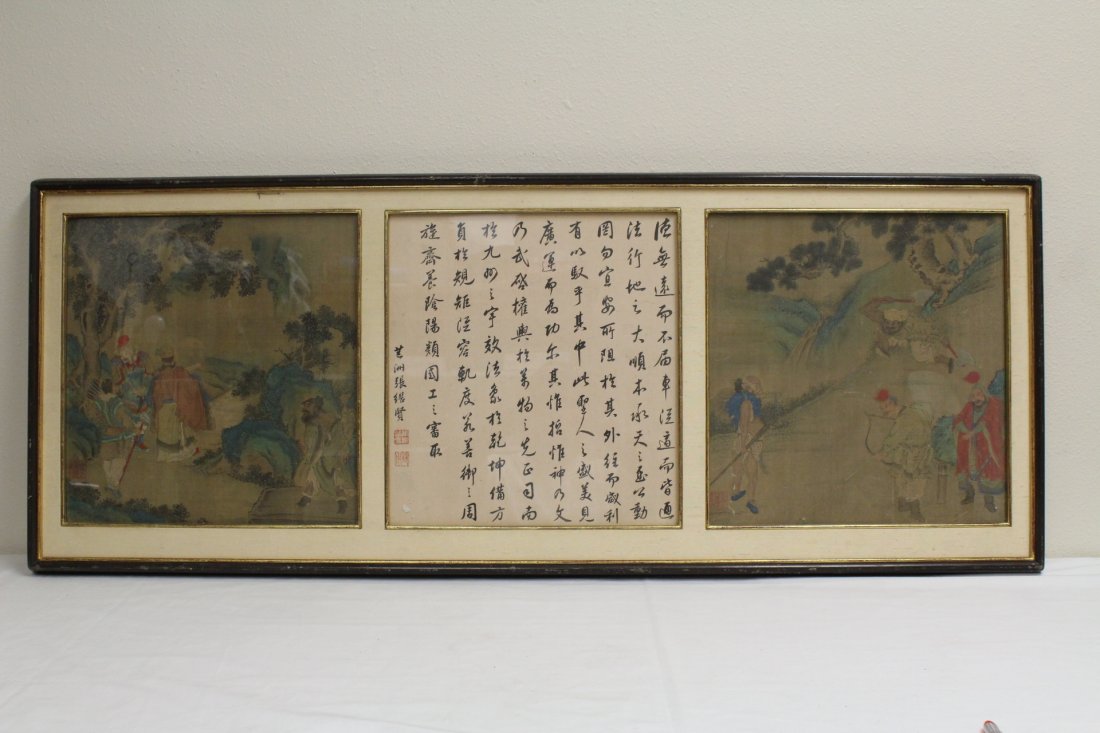 德無遠而不届車從適而皆通
法行地之大順本承天之至公動
罔勿宜安所阻於其外徑而啟利
有以馭乎其中此聖人之盛美見
廣運而為功尔其惟哲惟神乃文
乃武盛權輿於萬物之先正司南
於九野之宇效法象於乾坤備方
員於規矩從容軌度若善御之周
旋齊養陰陽類國工之審取
芝洲張繼賢